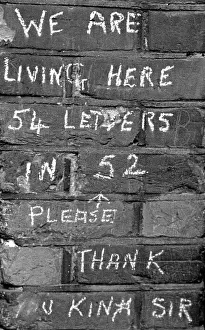 WE ARE
LIVING HERE
54 LETTERS
IN 52
PLEASE
THANK
YOU KIND SIR